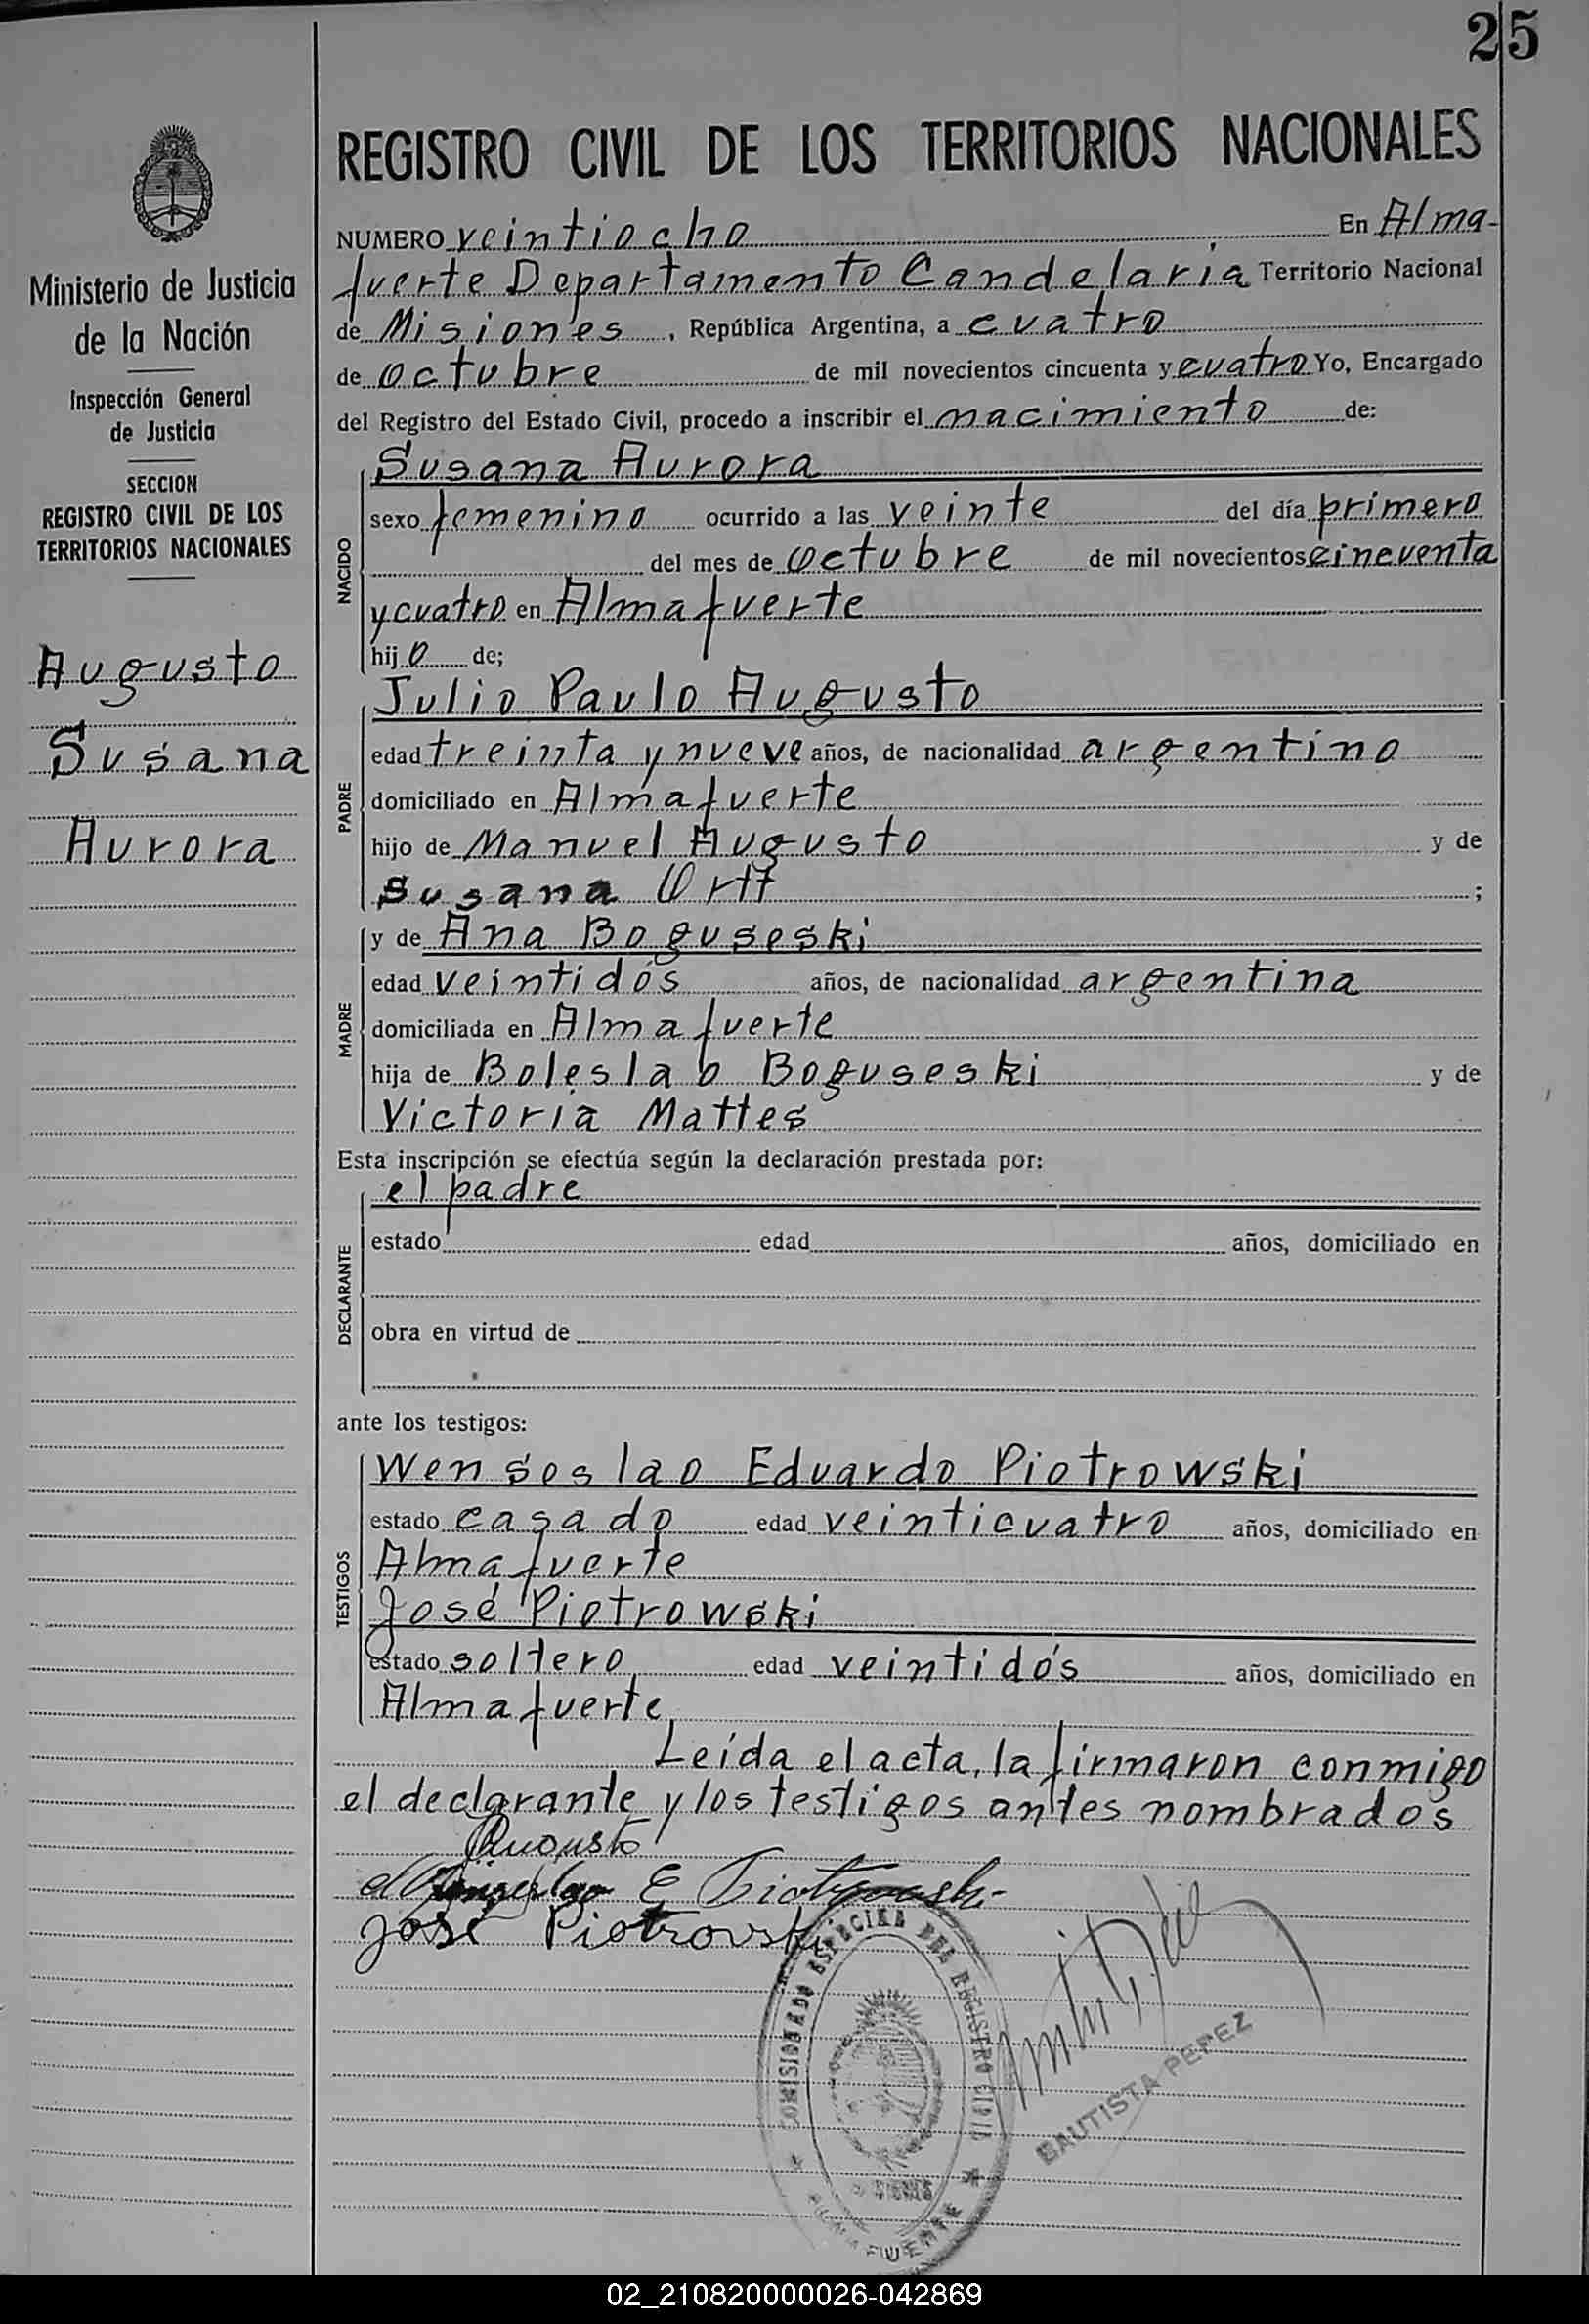 25
REGISTRO CIVIL DE LOS TERRITORIOS NACIONALES
Ministerio de Justicia
de la Nación
Inspección General
de Justicia
SECCION
REGISTRO CIVIL DE LOS
TERRITORIOS NACIONALES
Augusto
Susana
Aurora
NUMERO veintiocho En Alma-
fuerte Departamento Candelaria Territorio Nacional
de Misiones, República Argentina, a cuatro
de octubre de mil novecientos cincuenta y cuatro Yo, Encargado
del Registro del Estado Civil, procedo a inscribir el nacimiento de:
NACIDO
Susana Aurora
sexo femenino ocurrido a las veinte del día primero
del mes de octubre de mil novecientos cincuenta
y cuatro en Almafuerte
hijo de;
PADRE
Julio Paulo Augusto
edad treinta y nueve años, de nacionalidad argentino
domiciliado en Almafuerte
hijo de Manuel Augusto y de
Susana Ortt;
MADRE
y de Ana Boguseski
edad veintidós años, de nacionalidad argentina
domiciliada en Almafuerte
hija de Boleslao Boguseski y de
Victoria Mattes
Esta inscripción se efectúa según la declaración prestada por:
DECLARANTE
el padre
estado edad años, domiciliado en
obra en virtud de
ante los testigos:
TESTIGOS
Wenseslao Eduardo Piotrowski
estado casado edad veinticuatro años, domiciliado en
Almafuerte
José Piotrowski
estado soltero edad veintidós años, domiciliado en
Almafuerte
Leída el acta, la firmaron conmigo
el declarante y los testigos antes nombrados
Augusto
E Piotrowski
José Piotrovski
COMISIONADO ESPECIAL DEL REGISTRO CIVIL
MISIONES
ALMAFUERTE
BAUTISTA PEREZ
02_210820000026-042869